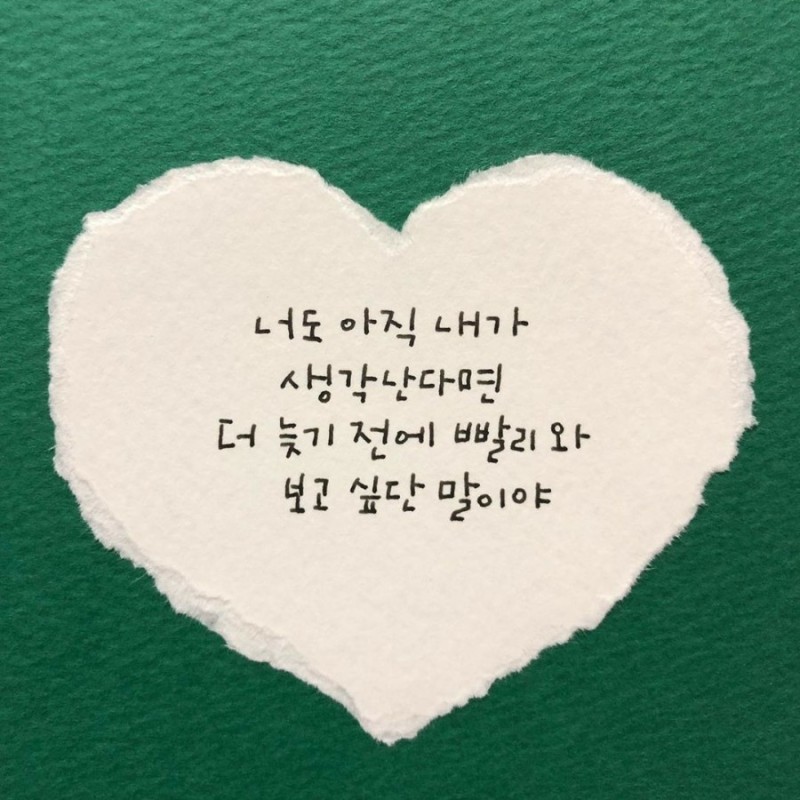 너도 아직 내가
생각난다면
더 늦기 전에 빨리 와
보고 싶단 말이야